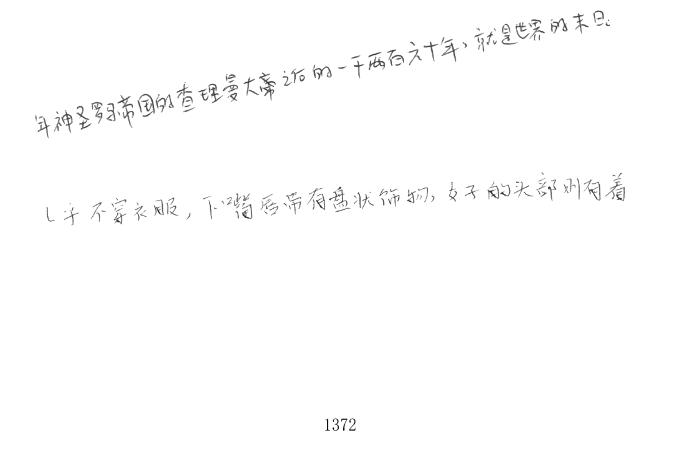 年神圣罗马帝国的查理曼大帝之后的一千两百六十年，就是世界的末日.
乎不穿衣服，下嘴唇带有盘状饰物，女子的头部则有着
1372